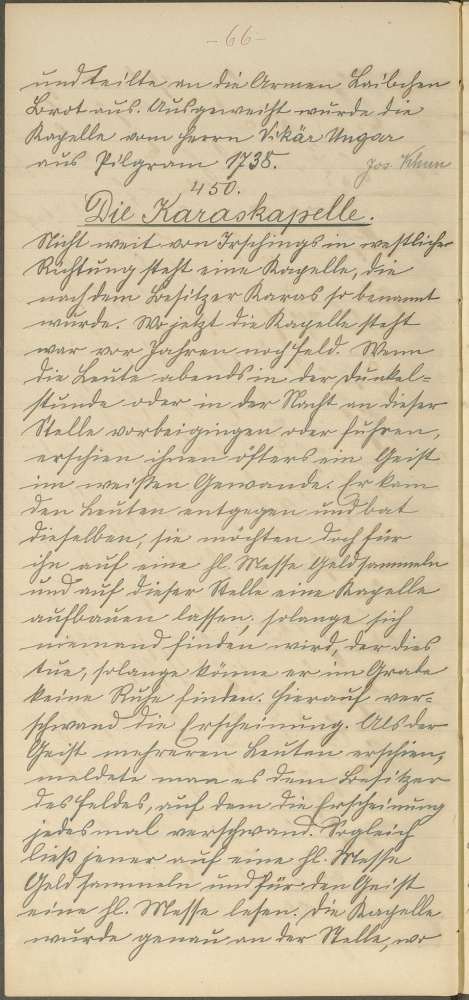 -66-
und teilte an die Armen Laibchen
Brot aus. Ausgeweiht wurde die
Kapelle vom Herrn Vikär Ungar
aus Pilgram 1738. Jos. Khun
450.
Die Karaskapelle.
Nicht weit von Irschings in westlicher
Richtung steht eine Kapelle, die
nach dem Besitzer Karas so benannt
wurde. Wo jetzt die Kapelle steht
war vor Jahren noch Feld. Wenn
die Leute abends in der Dunkel-
stunde oder in der Nacht an dieser
Stelle vorbeigingen oder fuhren,
erschien ihnen öfters ein Geist
im weißen Gewande. Er kam
den Leuten entgegen und bat
dieselben, sie möchten doch für
ihn auf eine hl. Messe Geld sammeln
und auf dieser Stelle eine Kapelle
aufbauen lassen; solange sich
niemand finden wird, der dies
tue, solange könne er im Grabe
keine Ruhe finden. Hierauf ver-
schwand die Erscheinung. Als der
Geist mehreren Leuten erschien,
meldete man es dem Besitzer
des Feldes, auf dem die Erscheinung
jedesmal verschwand. Sogleich
ließ jener auf eine hl. Messe
Geld sammeln und für den Geist
eine hl. Messe lesen. Die Kapelle
wurde genau an der Stelle, wo